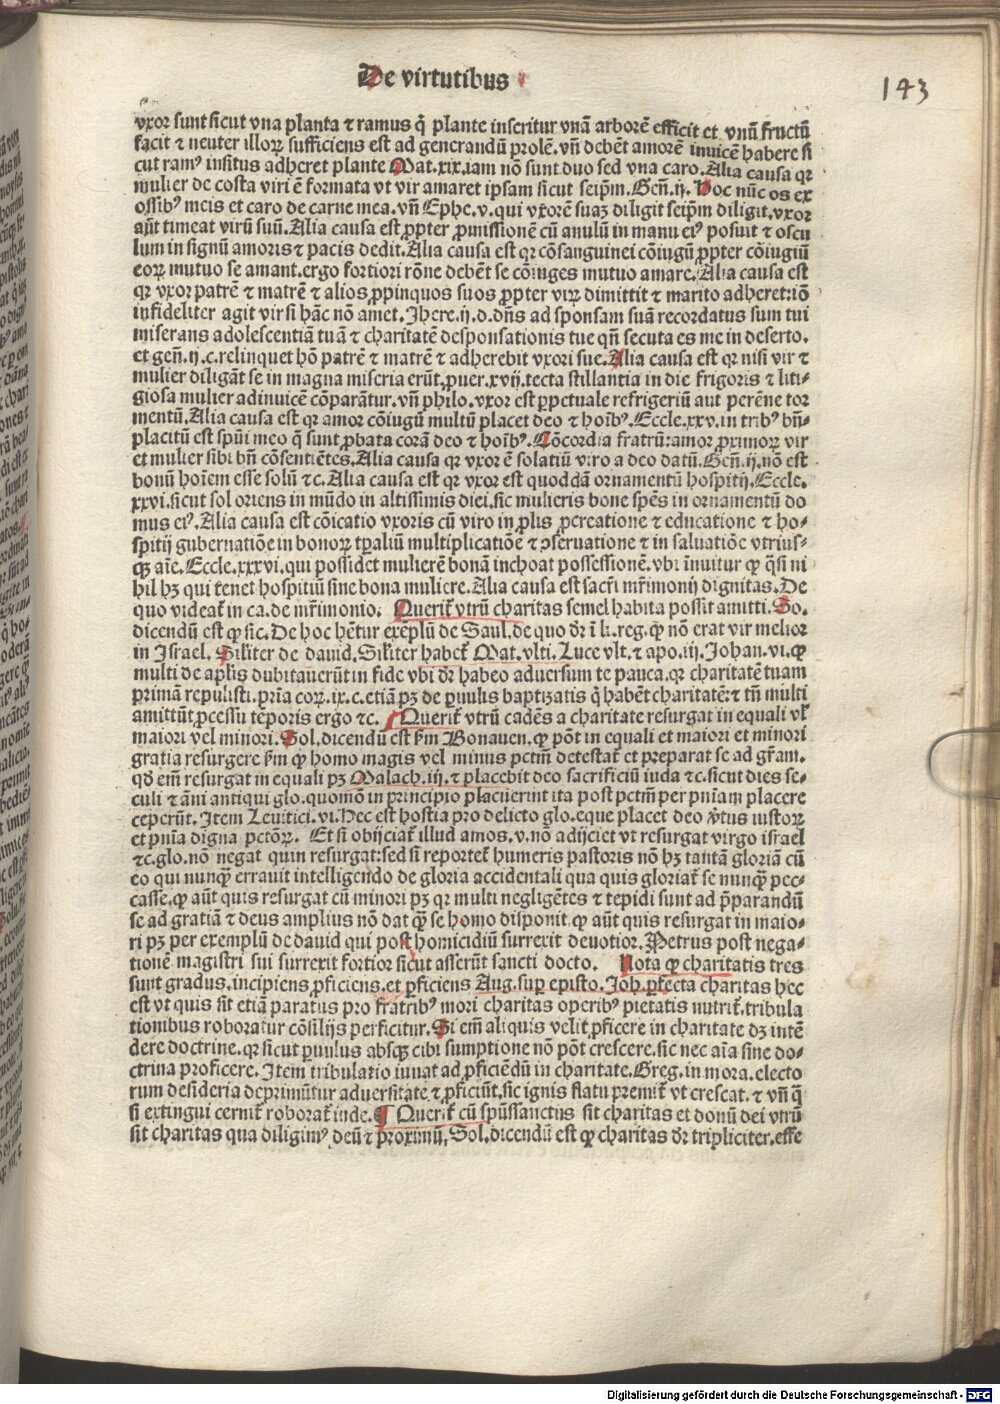 De virtutibus
143
vxor sunt sicut vna planta ⁊ ramus q̄ plante inseritur vnā arborē efficit et vnū fructū
facit ⁊ neuter illoꝝ sufficiens est ad generandū prolē. vn̄ debēt amorē inuicē habere si
cut ramꝰ insitus adheret plante Mat.xix.iam nō sunt duo sed vna caro. Alia causa qꝛ
mulier de costa viri ē formata vt vir amaret ipsam sicut seip̄m. Gen̄.ij. Hoc nūc os ex
ossibꝰ meis et caro de carne mea. vn̄ Ephe.v. qui vxorē suaꝫ diligit seip̄m diligit. vxor
aūt timeat virū suū. Alia causa est ꝓpter ꝓmissionē cū anulū in manu eiꝰ posuit ⁊ oscu
lum in signū amoris ⁊ pacis dedit. Alia causa est qꝛ cōsanguinei cōiugū ꝓpter cōiugiū
eoꝝ mutuo se amant. ergo fortiori rōne debēt se cōiuges mutuo amare. Alia causa est
qꝛ vxor patrē ⁊ matrē ⁊ alios ꝓpinquos suos ꝓpter viꝝ dimittit ⁊ marito adheret: iō
infideliter agit vir si hāc nō amet. Jhere.ij.d.dn̄s ad sponsam suā recordatus sum tui
miserans adolescentiā tuā ⁊ charitatē desponsationis tue qn̄ secuta es me in deserto.
et gen̄.ij.c.relinquet hō patrē ⁊ matrē ⁊ adherebit vxori sue. Alia causa est qꝛ nisi vir ⁊
mulier diligāt se in magna miseria erūt. ꝓuer.xvij. tecta stillantia in die frigoris ⁊ liti⸗
giosa mulier adinuicē cōparātur. vn̄ philo. vxor est ꝑpetuale refrigeriū aut perēne tor
mentū. Alia causa est qꝛ amor cōiugū multū placet deo ⁊ hoībꝰ. Eccle.xxv. in tribꝰ bn̄⸗
placitū est spūi meo q̄ sunt ꝓbata corā deo ⁊ hoībꝰ. Cōcordia fratrū: amor ꝓximoꝝ vir
et mulier sibi bn̄ cōsentiētes. Alia causa qꝛ vxor ē solatiū viro a deo datū. Gen̄.ij. nō est
bonū hoīem esse solū ⁊c. Alia causa est qꝛ vxor est quoddā ornamentū hospitij. Eccle.
xxvi. sicut sol oriens in mūdo in altissimis diei. sic mulieris bone spēs in ornamentū do
mus eiꝰ. Alia causa est cōicatio vxoris cū viro in ꝓlis ꝓcreatione ⁊ educatione ⁊ ho⸗
spitij gubernatiōe in bonoꝝ tꝑaliū multiplicatiōe ⁊ ꝯseruatione ⁊ in saluatiōe vtrius⸗
qꝫ aīe. Eccle.xxxvi. qui possidet mulierē bonā inchoat possessionē. vbi īnuitur ꝙ q̄si ni
hil hꝫ qui tenet hospitiū sine bona muliere. Alia causa est sacri mr̄imonij dignitas. De
quo videat̄ in ca.de mr̄imonio. Querit̄ vtrū charitas semel habita possit amitti. So.
dicendū est ꝙ sic. De hoc hētur exēplū de Saul. de quo dr̄ i li.reg. ꝙ nō erat vir melior
in Israel. Silr̄iter de dauid. Silr̄iter habet̄ Mat.vlti. Luce vlt. ⁊ apo.iij. Johan.vi. ꝙ
multi de apl̄is dubitauerūt in fide vbi dr̄ habeo aduersum te pauca. qꝛ charitatē tuam
primā repulisti. pria corꝝ.ix.c. etiā pꝫ de ꝑuulis baptizatis q̄ habēt charitatē: ⁊ tn̄ multi
amittūt ꝓcessu tēporis ergo ⁊c. Querit̄ vtrū cadēs a charitate resurgat in equali vl̄
maiori vel minori. Sol. dicendū est ẜm Bonauen. ꝙ pōt in equali et maiori et minori
gratia resurgere ẜm ꝙ homo magis vel minus pctm̄ detestat̄ et preparat se ad gr̄am.
qd̄ em̄ resurgat in equali pꝫ Malach.iij. ⁊ placebit deo sacrificiū iuda ⁊c. sicut dies se⸗
culi ⁊ āni antiqui glo. quomō in principio placuerint ita post pctm̄ per pn̄iam placere
ceperūt. Item Leuitici.vi. Hec est hostia pro delicto glo. eque placet deo ꝟtus iustoꝝ
et pn̄ia digna pctōꝝ. Et si obijciat̄ illud amos.v. nō adijciet vt resurgat virgo israel
⁊c. glo. nō negat quin resurgat: sed si reportet̄ humeris pastoris nō hꝫ tantā gloriā cū
eo qui nunqꝫ errauit intelligendo de gloria accidentali qua quis gloriat̄ se nunqꝫ pec⸗
casse. ꝙ aūt quis resurgat cū minori pꝫ qꝛ multi negligētes ⁊ tepidi sunt ad p̄parandū
se ad gratiā ⁊ deus amplius nō dat qꝫ se homo disponit. ꝙ aūt quis resurgat in maio⸗
ri pꝫ per exemplū de dauid qui post homicidiū surrexit deuotior. Petrus post nega⸗
tionē magistri sui surrexit fortior sicut asserūt sancti docto. Nota ꝙ charitatis tres
sunt gradus. incipiens ꝓficiens. et ꝑficiens Aug. sup episto. Joh. ꝑfecta charitas hec
est vt quis sit etiā paratus pro fratribꝰ mori charitas operibꝰ pietatis nutrit̄. tribula
tionibus roboratur cōsilijs perficitur. Si em̄ aliquis velit ꝓficere in charitate dꝫ intē
dere doctrine. qꝛ sicut ꝑuulus absqꝫ cibi sumptione nō pōt crescere. sic nec aīa sine do⸗
ctrina proficere. Item tribulatio iuuat ad ꝓficiēdū in charitate. Greg. in mora. electo
rum desideria deprimūtur aduersitate ⁊ ꝓficiūt. sic ignis flatu premit̄ vt crescat. ⁊ vn̄ q̄
si extingui cernit̄ roborat̄ inde. ¶ Querit̄ cū spūssanctus sit charitas et donū dei vtrū
sit charitas qua diligimꝰ deū ⁊ proximū. Sol. dicendū est ꝙ charitas dr̄ tripliciter. effe
Digitalisierung gefördert durch die Deutsche Forschungsgemeinschaft - DFG